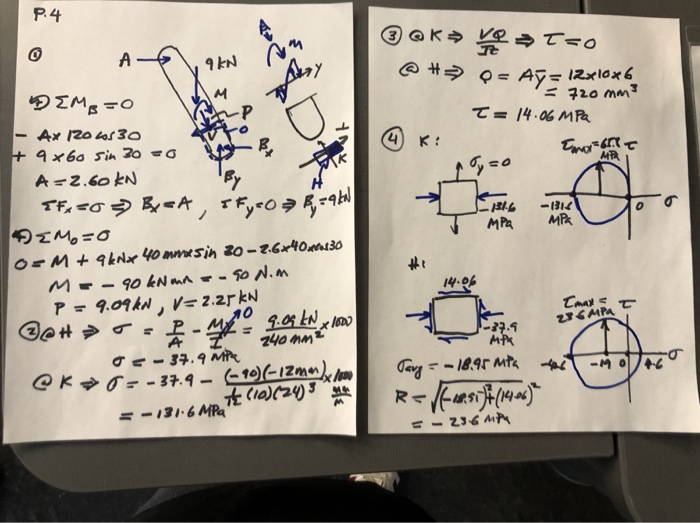 P.4
①
A →
9 kN
M
P
O
V
Bx
By
M
Y
K
H
↶ ΣM_B = 0
- A x 120 cos 30
+ 9 x 60 sin 30 = 0
A = 2.60 kN
ΣFx = 0 ⇒ Bx = A , ΣFy = 0 ⇒ By = 9 kN
ΣM₀ = 0
0 = M + 9 kN x 40 mm x sin 30 - 2.6 x 40 x cos 30
M = - 90 kN mm = - 90 N.m
P = 9.09 kN , V = 2.25 kN
② @ H ⇒ σ = P/A - My/I → 0 = 9.09 kN / 240 mm² x 1000
σ = - 37.9 MPa
@ K ⇒ σ = - 37.9 - (-90)(-12 mm) / 1/12 (10)(24)³ x 1000 mm/m
= - 131.6 MPa
③ @ K ⇒ VQ/It ⇒ τ = 0
@ H ⇒ Q = Aȳ = 12x10x6
= 720 mm³
τ = 14.06 MPa
④ K:
σy = 0
-131.6
MPa
τmax = 65.8
MPa
τ
-131.6
MPa
0
σ
H:
14.06
-37.9
MPa
τmax =
23.6 MPa
τ
-19
0
4.6
σ
σavg = - 18.95 MPa
R = √(-18.95)² + (14.06)²
= - 23.6 MPa